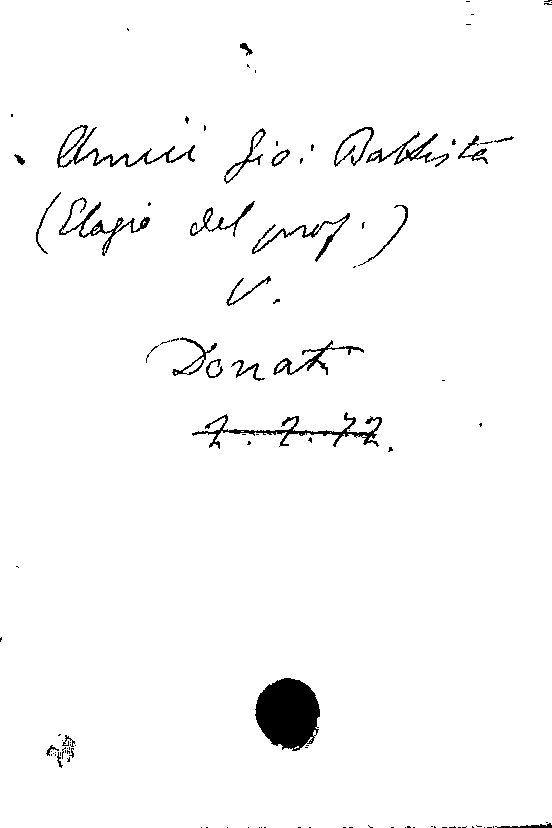 Amici Gio: Battista
(Elogio del prof.)
V.
Donati
7.7.72.